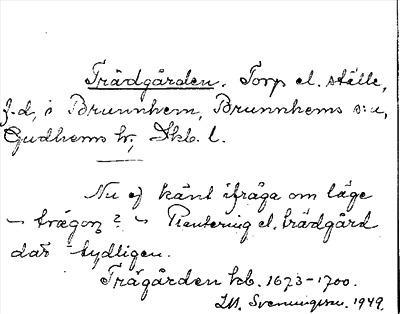 Trädgården. Torp el. ställe,
f.d., i Brunnhem, Brunnhems s:n,
Gudhems hr, Skb. l.
Nu ej känt ifråga om läge
– trägoṇ? – Plantering el. trädgård
där tydligen.
Trägården kb. 1673–1700.
I.M. Svenningson. 1949.